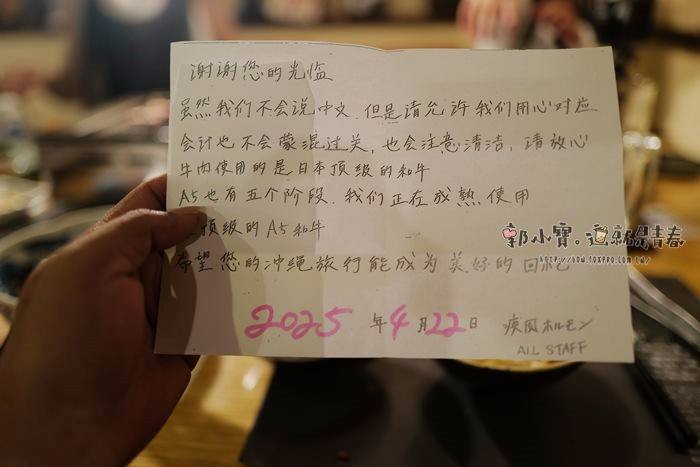 谢谢您的光临
虽然我们不会说中文.但是请允许我们用心对应
会计也不会蒙混过关,也会注意清洁,请放心
牛肉使用的是日本顶级的和牛
A5也有五个阶段.我们正在成熟使用
顶级的A5和牛
希望您的冲绳旅行能成为美好的回忆
2025年4月22日 疾風ホルモン
ALL STAFF
郭小寶。這就是青春
HTTP://WWW.FOXPRO.COM.TW/